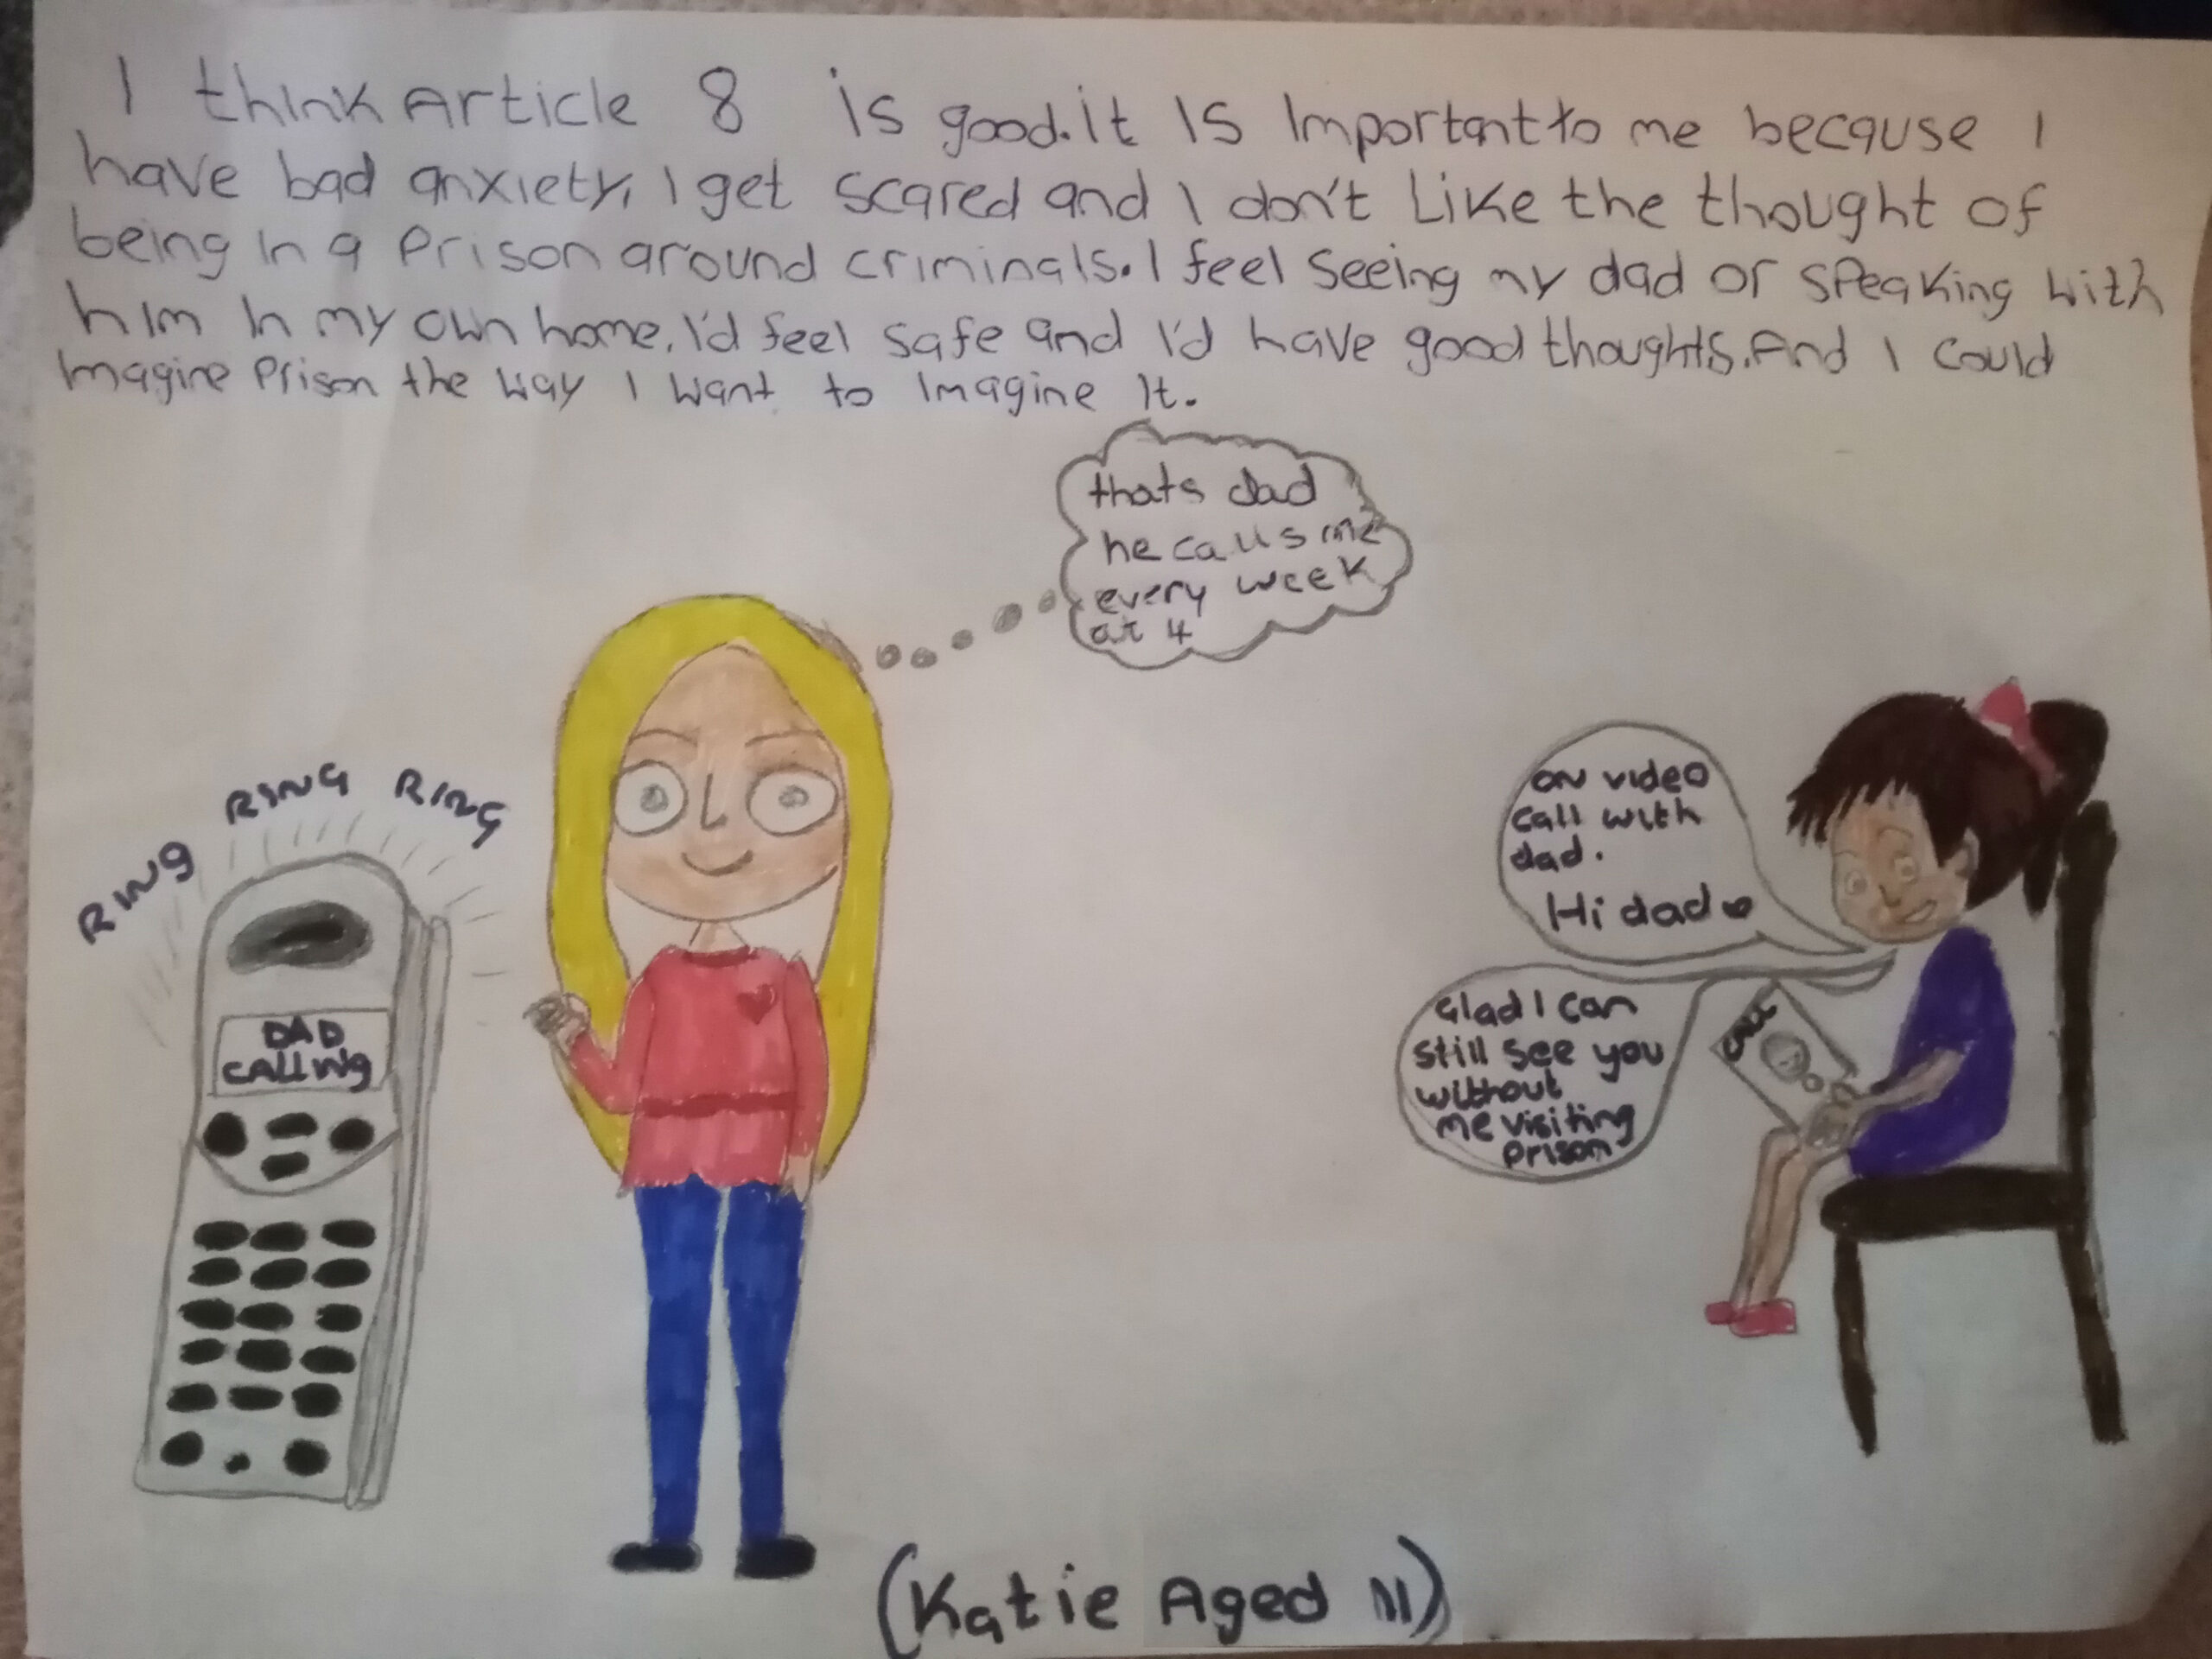 I think Article 8 is good. it is Important to me because I
have bad anxiety, I get scared and I don't Like the thought of
being in a Prison around criminals. I feel seeing my dad or speaking with
him in my own home. I'd feel safe and I'd have good thoughts. And I could
Imagine Prison the way I want to Imagine It.
thats dad
he calls me
every week
at 4
RING RING RING
DAD
calling
on video
call with
dad.
Hi dad
Glad I can
still see you
without
me visiting
prison
(Katie Aged 11)